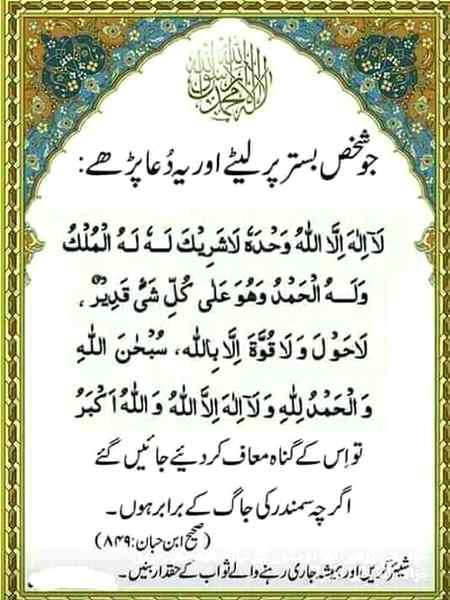 لا اله الا الله محمد رسول الله
جو شخص بستر پر لیٹے اور یہ دُعا پڑھے:
لَآ اِلٰهَ اِلَّا اللّٰهُ وَحْدَهٗ لَا شَرِيْكَ لَـهٗ لَهُ الْمُلْكُ
وَلَـــهُ الْحَمْدُ وَهُوَ عَلٰى كُلِّ شَیْءٍ قَدِيْرٌ ،
لَاحَوْلَ وَلَا قُوَّةَ اِلَّا بِاللّٰهِ، سُبْحٰنَ اللّٰهِ
وَالْحَمْدُ لِلّٰهِ وَلَآ اِلٰهَ اِلَّا اللّٰهُ وَاللّٰهُ اَكْبَرُ
تو اِس کے گناہ معاف کر دئیے جائیں گے
اگرچہ سمندر کی جاگ کے برابر ہوں۔
(صحیح ابن حبان: ۸۴۹)
شیئر کریں اور ہمیشہ جاری رہنے والے ثواب کے حقدار بنیں۔